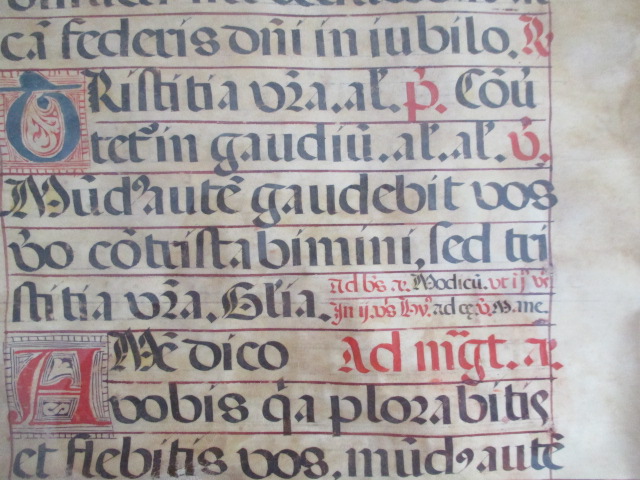 cā federis dn̄i in iubilo. R
TRistitia vr̄a. al'. p̄. Cōu
tet᷑ in gaudiū. al'. al'. v̄.
Mūdꝰ autē gaudebit vos
v̄o cōtristabimini, sed tri
stitia vr̄a. Gl'ia. ad bs̄ a. Modicū. vt
In ij. vs̄ ad M. me.
AMē dico Ad mḡt. a.
vobis q̄a plorabitis
et flebitis vos, mūdꝰ autē